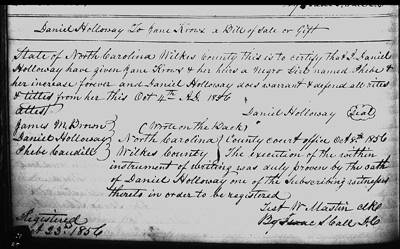 Daniel Holloway To Jane Kroux a Bill of Sale or Gift
State of North Carolina Wilkes County this is to certify that I Daniel
Holloway have given Jane Kroux & her heirs a Negro Girl named Phebe &
her increase forever and Daniel Holloway does warrant & defend all rites
& titles from her this Oct 4th A.D. 1856
attest Daniel Holloway Seal
James M Brown (Wrote on the Back)
Daniel Holloway North Carolina County court office Oct 1856
Phebe Caudill Wilkes County The Execution of the within
instrument of writing was duly proven by the oath
of Daniel Holloway one of the Subscribing witness
thereto in order to be registered
Test W Mastin clk
Registered By Isaac S Call DC
23rd 1856